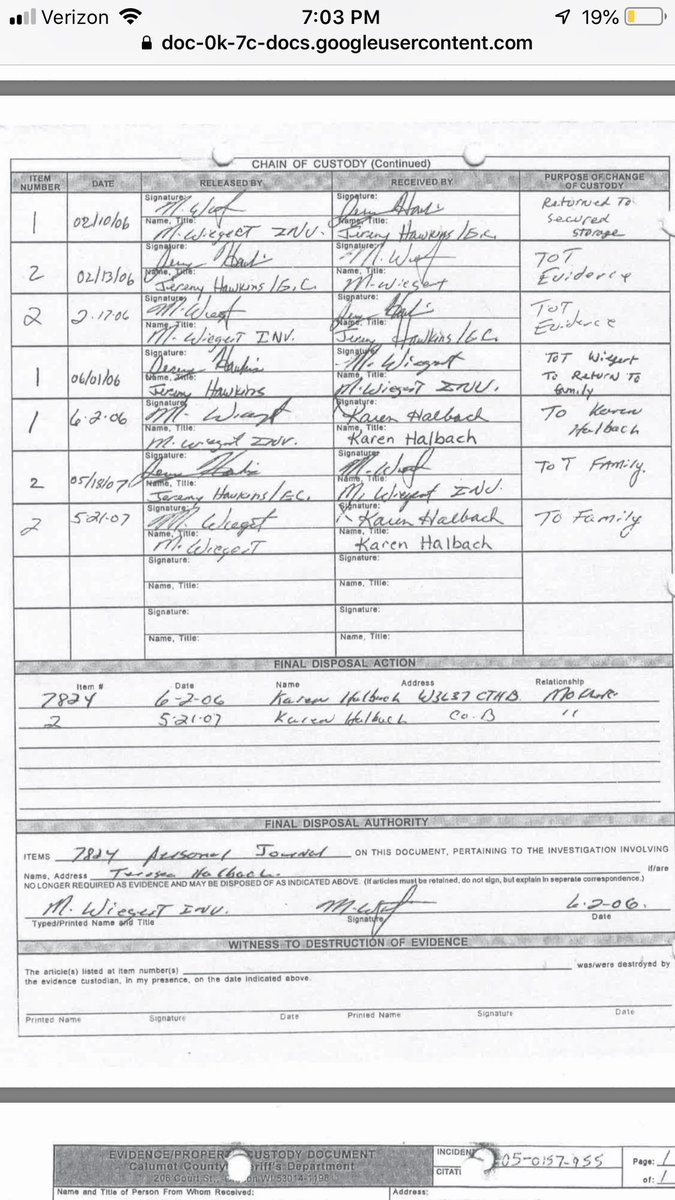 Verizon 7:03 PM 19%
doc-0k-7c-docs.googleusercontent.com
CHAIN OF CUSTODY (Continued)
ITEM NUMBER DATE RELEASED BY RECEIVED BY PURPOSE OF CHANGE OF CUSTODY
1 02/10/06 Signature: M. Wiegert Signature: Jeremy Hawkins Returned To secured storage
Name, Title: M. Wiegert INV. Name, Title: Jeremy Hawkins / E.C.
2 02/13/06 Signature: Jeremy Hawkins Signature: M. Wiegert ToT Evidence
Name, Title: Jeremy Hawkins / E.C. Name, Title: M. Wiegert
2 2-17-06 Signature: M. Wiegert Signature: Jeremy Hawkins ToT Evidence
Name, Title: M. Wiegert INV. Name, Title: Jeremy Hawkins / E.C.
1 06/01/06 Signature: Jeremy Hawkins Signature: M. Wiegert ToT Wiegert To Return To family
Name, Title: Jeremy Hawkins Name, Title: M. Wiegert INV.
1 6-2-06 Signature: M. Wiegert Signature: Karen Halbach To Karen Halbach
Name, Title: M. Wiegert INV. Name, Title: Karen Halbach
2 05/18/07 Signature: Signature: M. Wiegert ToT Family.
Name, Title: Jeremy Hawkins / E.C. Name, Title: M. Wiegert INV.
2 5-21-07 Signature: M. Wiegert Signature: Karen Halbach To Family
Name, Title: M. Wiegert Name, Title: Karen Halbach
Signature: Signature:
Name, Title: Name, Title:
Signature: Signature:
Name, Title: Name, Title:
FINAL DISPOSAL ACTION
Item # Date Name Address Relationship
7824 6-2-06 Karen Halbach CTHB Mother
2 5-21-07 Karen Halbach Co. B "
FINAL DISPOSAL AUTHORITY
ITEMS 7824 Personal Journal ON THIS DOCUMENT, PERTAINING TO THE INVESTIGATION INVOLVING
Name, Address Teresa Halbach if/are
NO LONGER REQUIRED AS EVIDENCE AND MAY BE DISPOSED OF AS INDICATED ABOVE. (If articles must be retained, do not sign, but explain in seperate correspondence.)
M. Wiegert INV. M. Wiegert 6-2-06.
Typed/Printed Name and Title Signature Date
WITNESS TO DESTRUCTION OF EVIDENCE
The article(s) listed at item number(s) was/were destroyed by
the evidence custodian, in my presence, on the date indicated above.
Printed Name Signature Date Printed Name Signature Date
EVIDENCE/PROPERTY CUSTODY DOCUMENT
Calumet County Sheriff's Department
206 Court St., WI 53014-1198
INCIDENT 05-0157-955 Page: 1
CITATI of: 1
Name and Title of Person From Whom Received: Address: